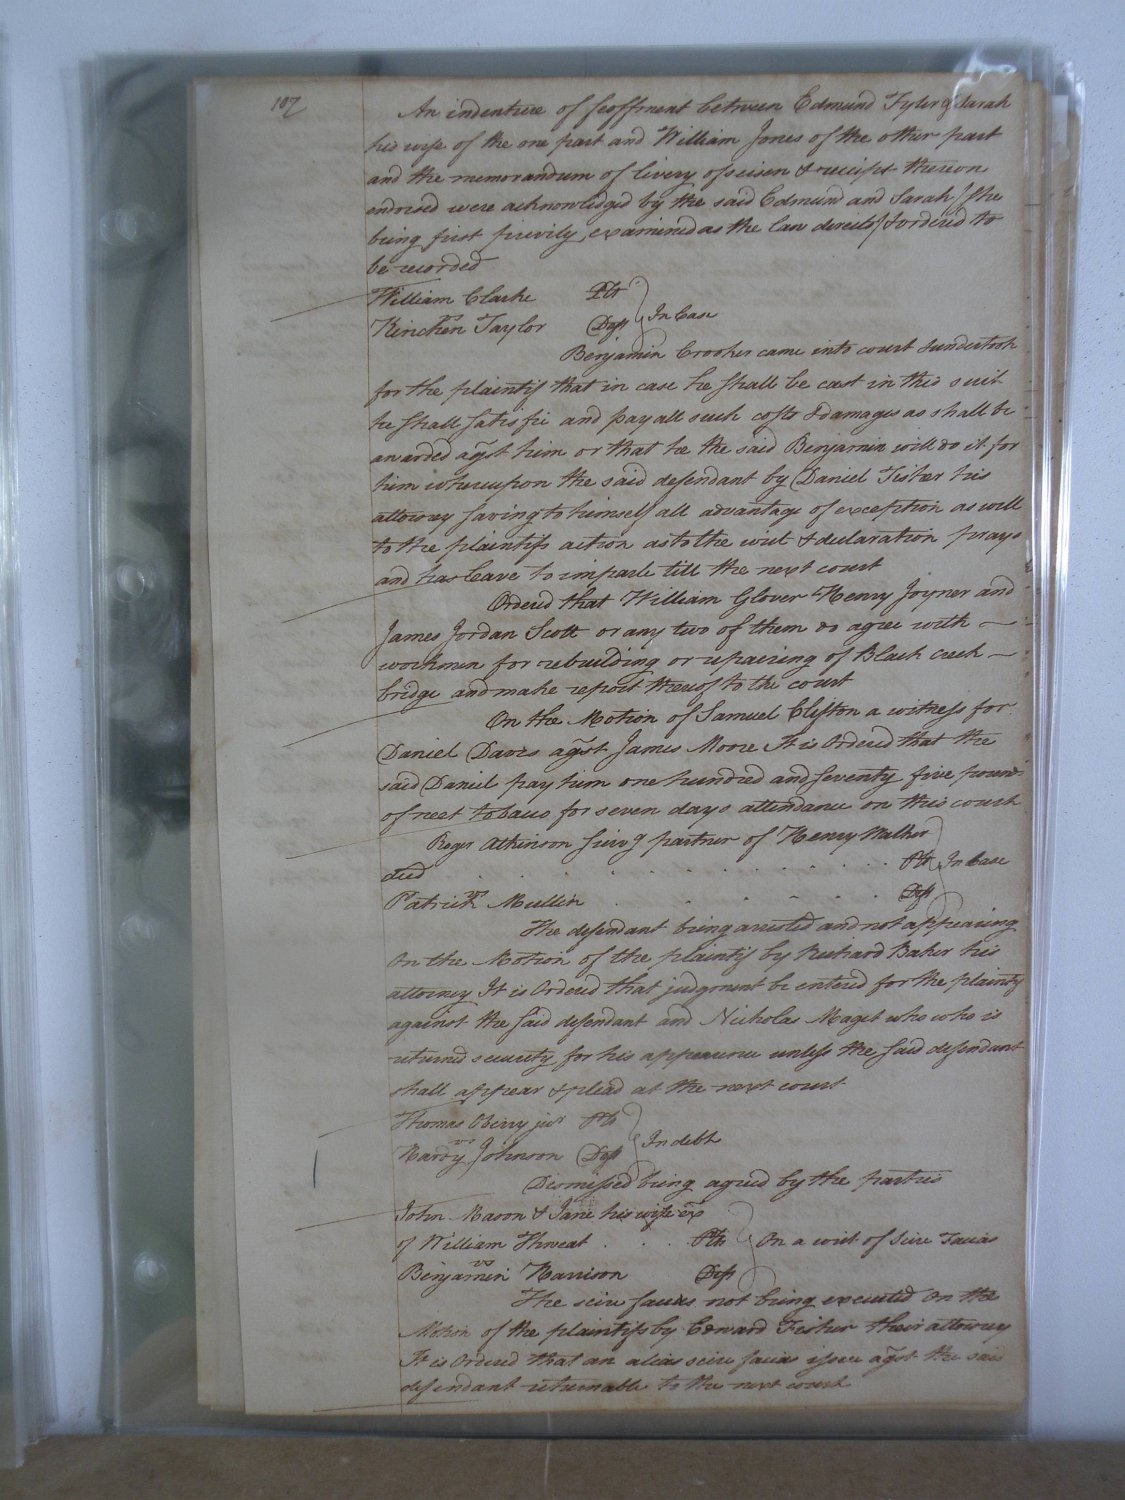 107
An indenture of feoffment between Edmund Tyler & Sarah
his wife of the one part and William Jones of the other part
and the memorandum of livery of seisen & receipt thereon
endorsed were acknowledged by the said Edmund and Sarah (she
being first privily examined as the law directs) & ordered to
be recorded
William Clarke Plt
vs In Case
Kinchen Taylor Deft
Benjamin Crooker came into court & undertook
for the plaintif that in case he shall be cast in this suit
he shall satisfie and pay all such costs & damages as shall be
awarded agst him or that he the said Benjamin will do it for
him whereupon the said defendant by Daniel Fisher his
attorney saving to himself all advantage of exception as well
to the plaintifs action as to the writ & declaration prays
and has leave to imparle till the next court
Ordered that William Glover Henry Joyner and
James Jordan Scott or any two of them do agree with
workmen for rebuilding or repairing of Black creek
bridge and make report thereof to the court
On the Motion of Samuel Clifton a witness for
Daniel Davis agst James Moore It is Ordered that the
said Daniel pay him one hundred and seventy five pounds
of neet tobacco for seven days attendance on this court
Roger Atkinson survg partner of Henry Walker
decd . . . . . . . . . . Plt In Case
vs
Patrick Mullin . . . . . . Deft
The defendant being arrested and not appearing
On the Motion of the plaintif by Richard Baker his
attorney It is Ordered that judgment be entered for the plaintif
against the said defendant and Nicholas Maget who who is
returned security for his appearance unless the said defendant
shall appear & plead at the next court
Thomas Oberry junr Plt
vs In debt
Hardy Johnson Deft
Dismissed being agreed by the parties
John Mason & Jane his wife exx
of William Threat . . . . Plts On a writ of Scire Facias
vs
Benjamin Harrison Deft
The scire facias not being executed On the
Motion of the plaintifs by Edward Fisher their attorney
It is Ordered that an alias scire facias issue agst the said
defendant returnable to the next court